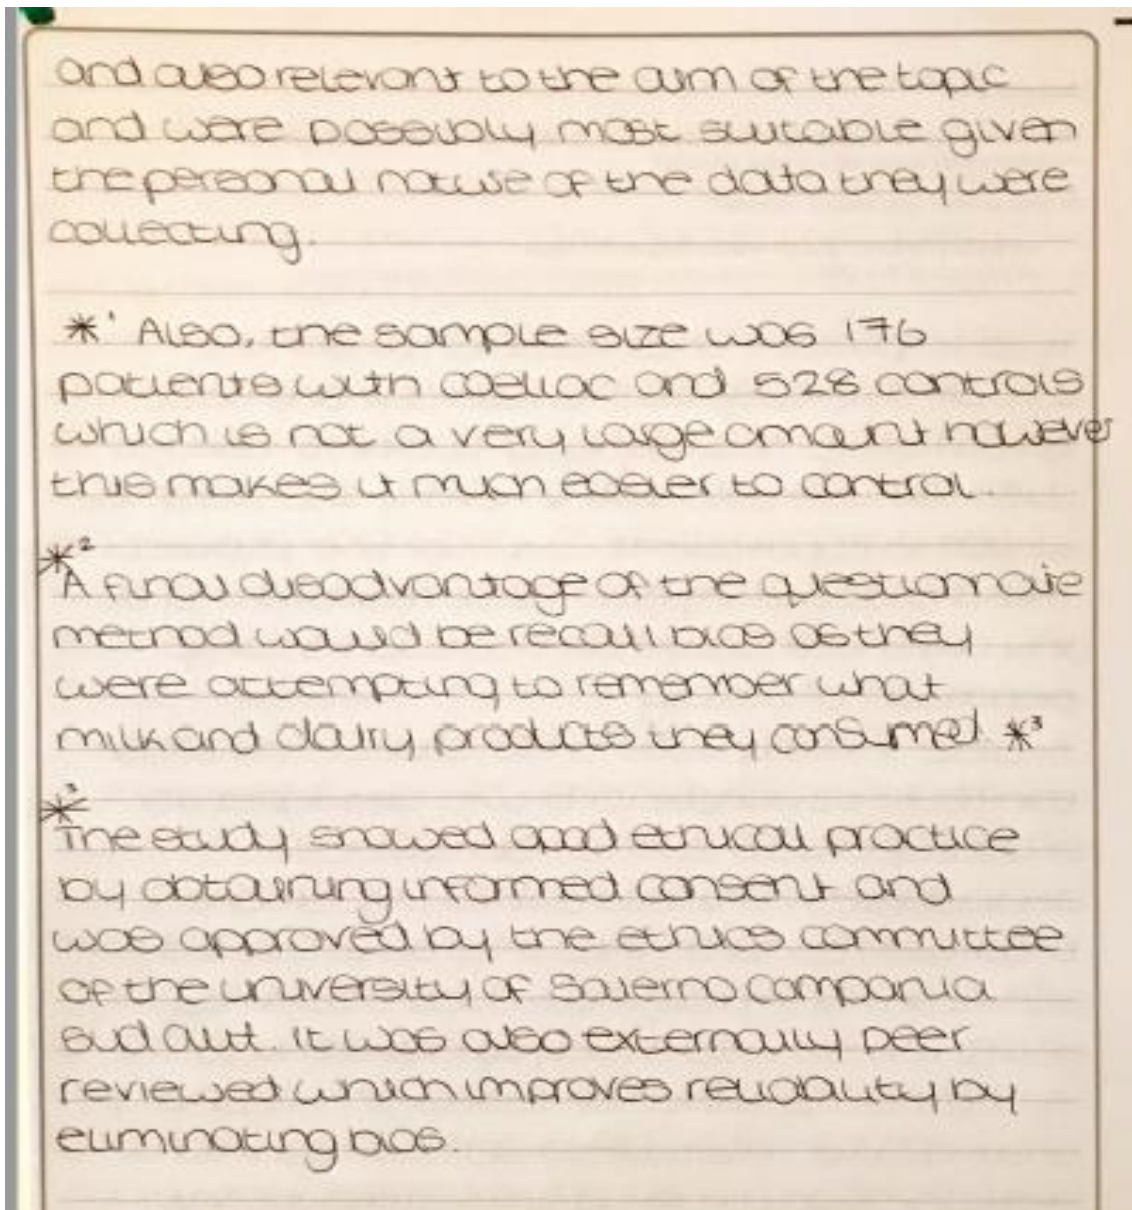 and also relevant to the aim of the topic
and were possibly most suitable given
the personal nature of the data they were
collecting.
*¹ Also, the sample size was 176
patients with coeliac and 528 controls
which is not a very large amount however
this makes it much easier to control.
*²
A final disadvantage of the questionnaire
method would be recall bias as they
were attempting to remember what
milk and dairy products they consumed. *³
*³
The study showed good ethical practice
by obtaining informed consent and
was approved by the ethics committee
of the university of Salerno Campania
sud aut. It was also externally peer
reviewed which improves reliability by
eliminating bias.